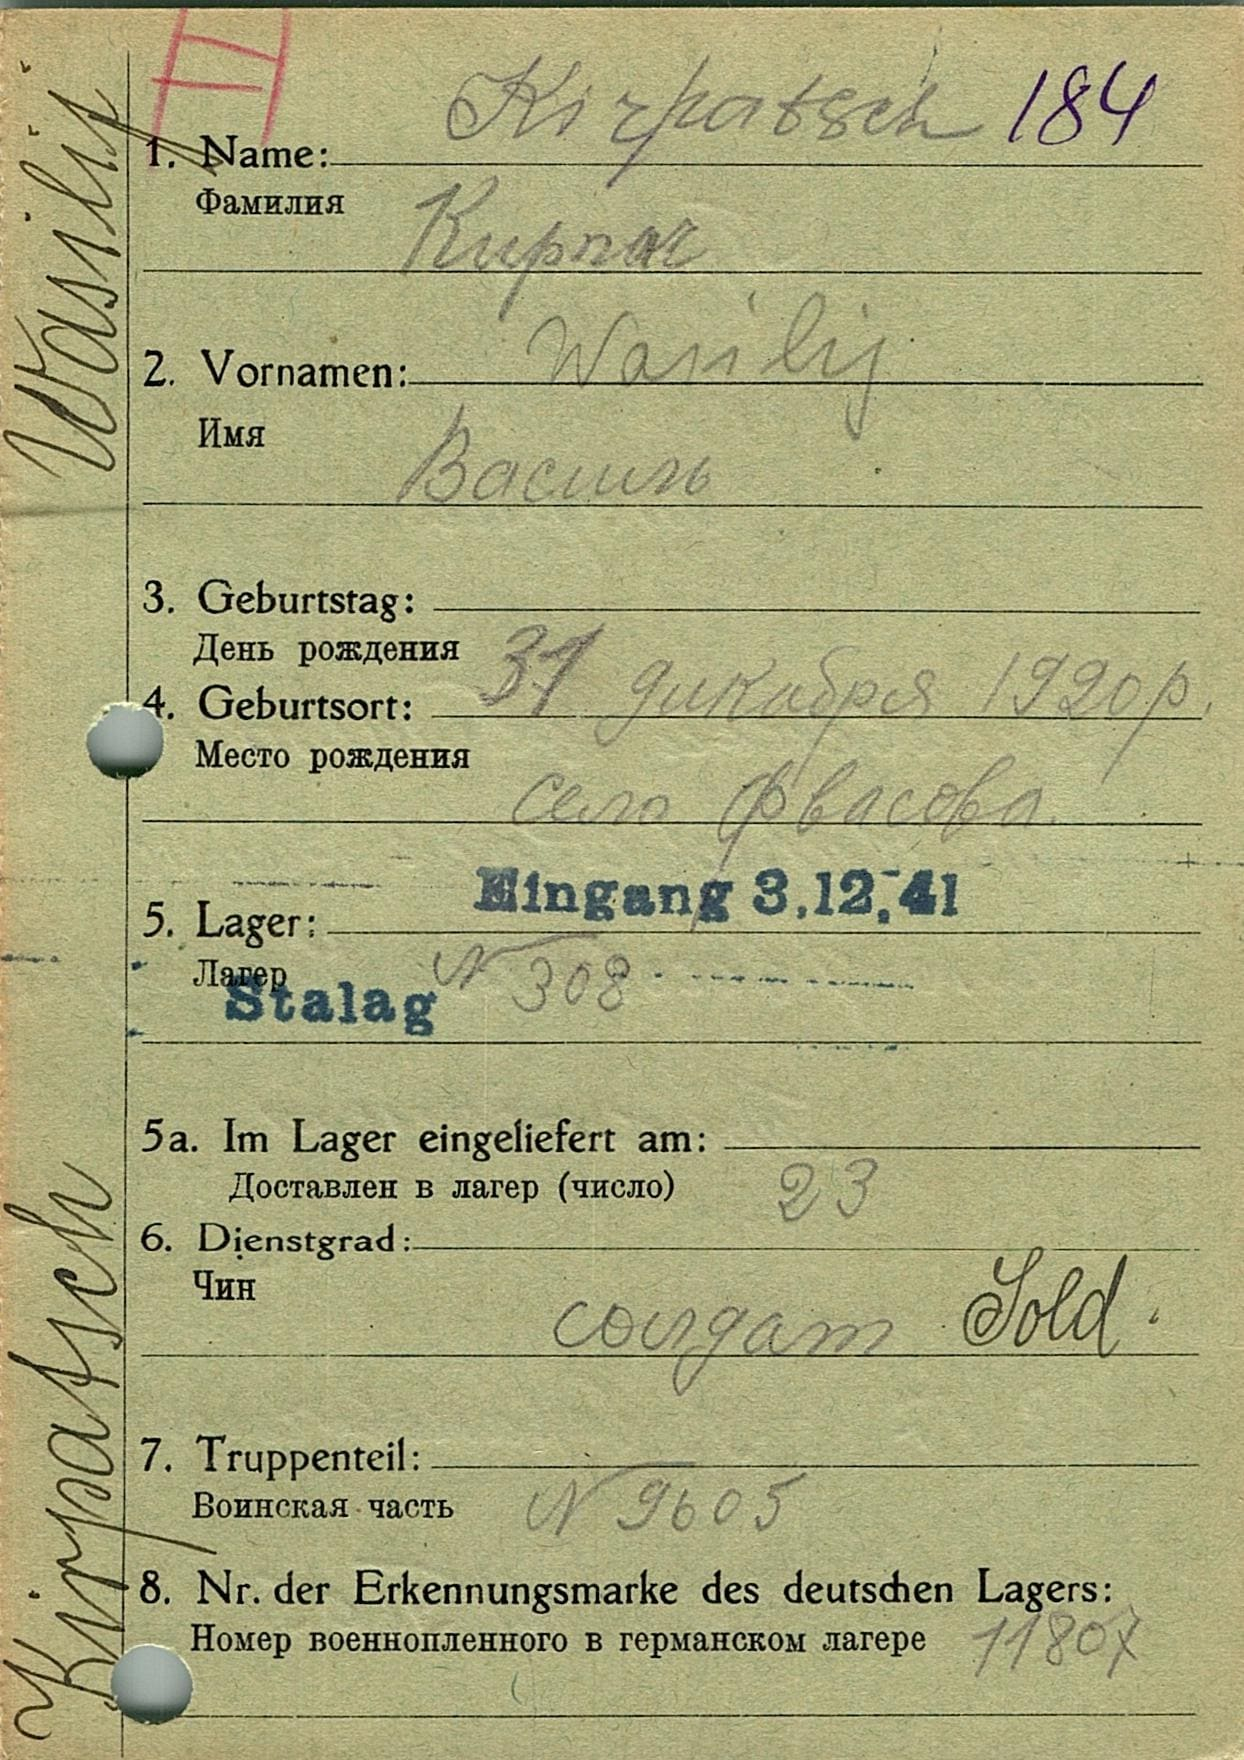 II
Kirpatsch 184
1. Name:
Фамилия
Кирпач
2. Vornamen: Wasilij
Имя
Василь
3. Geburtstag:
День рождения
31 дикабря 1920 р.
4. Geburtsort:
Место рождения
село
Eingang 3.12.41
5. Lager:
Лагер
Stalag N 308
5a. Im Lager eingeliefert am:
Доставлен в лагер (число) 23
6. Dienstgrad:
Чин
солдат Sold.
7. Truppenteil:
Воинская часть N 9605
8. Nr. der Erkennungsmarke des deutschen Lagers:
Номер военнопленного в германском лагере 11807
Kirpatsch Wasilij